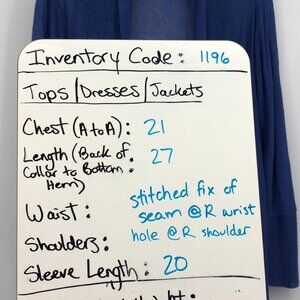 Inventory Code: 1196
Tops/Dresses/Jackets
Chest (A to A): 21
Length (Back of Collar to Bottom Hem): 27
Waist:
stitched fix of
seam @ R wrist
hole @ R shoulder
Shoulders:
Sleeve Length: 20